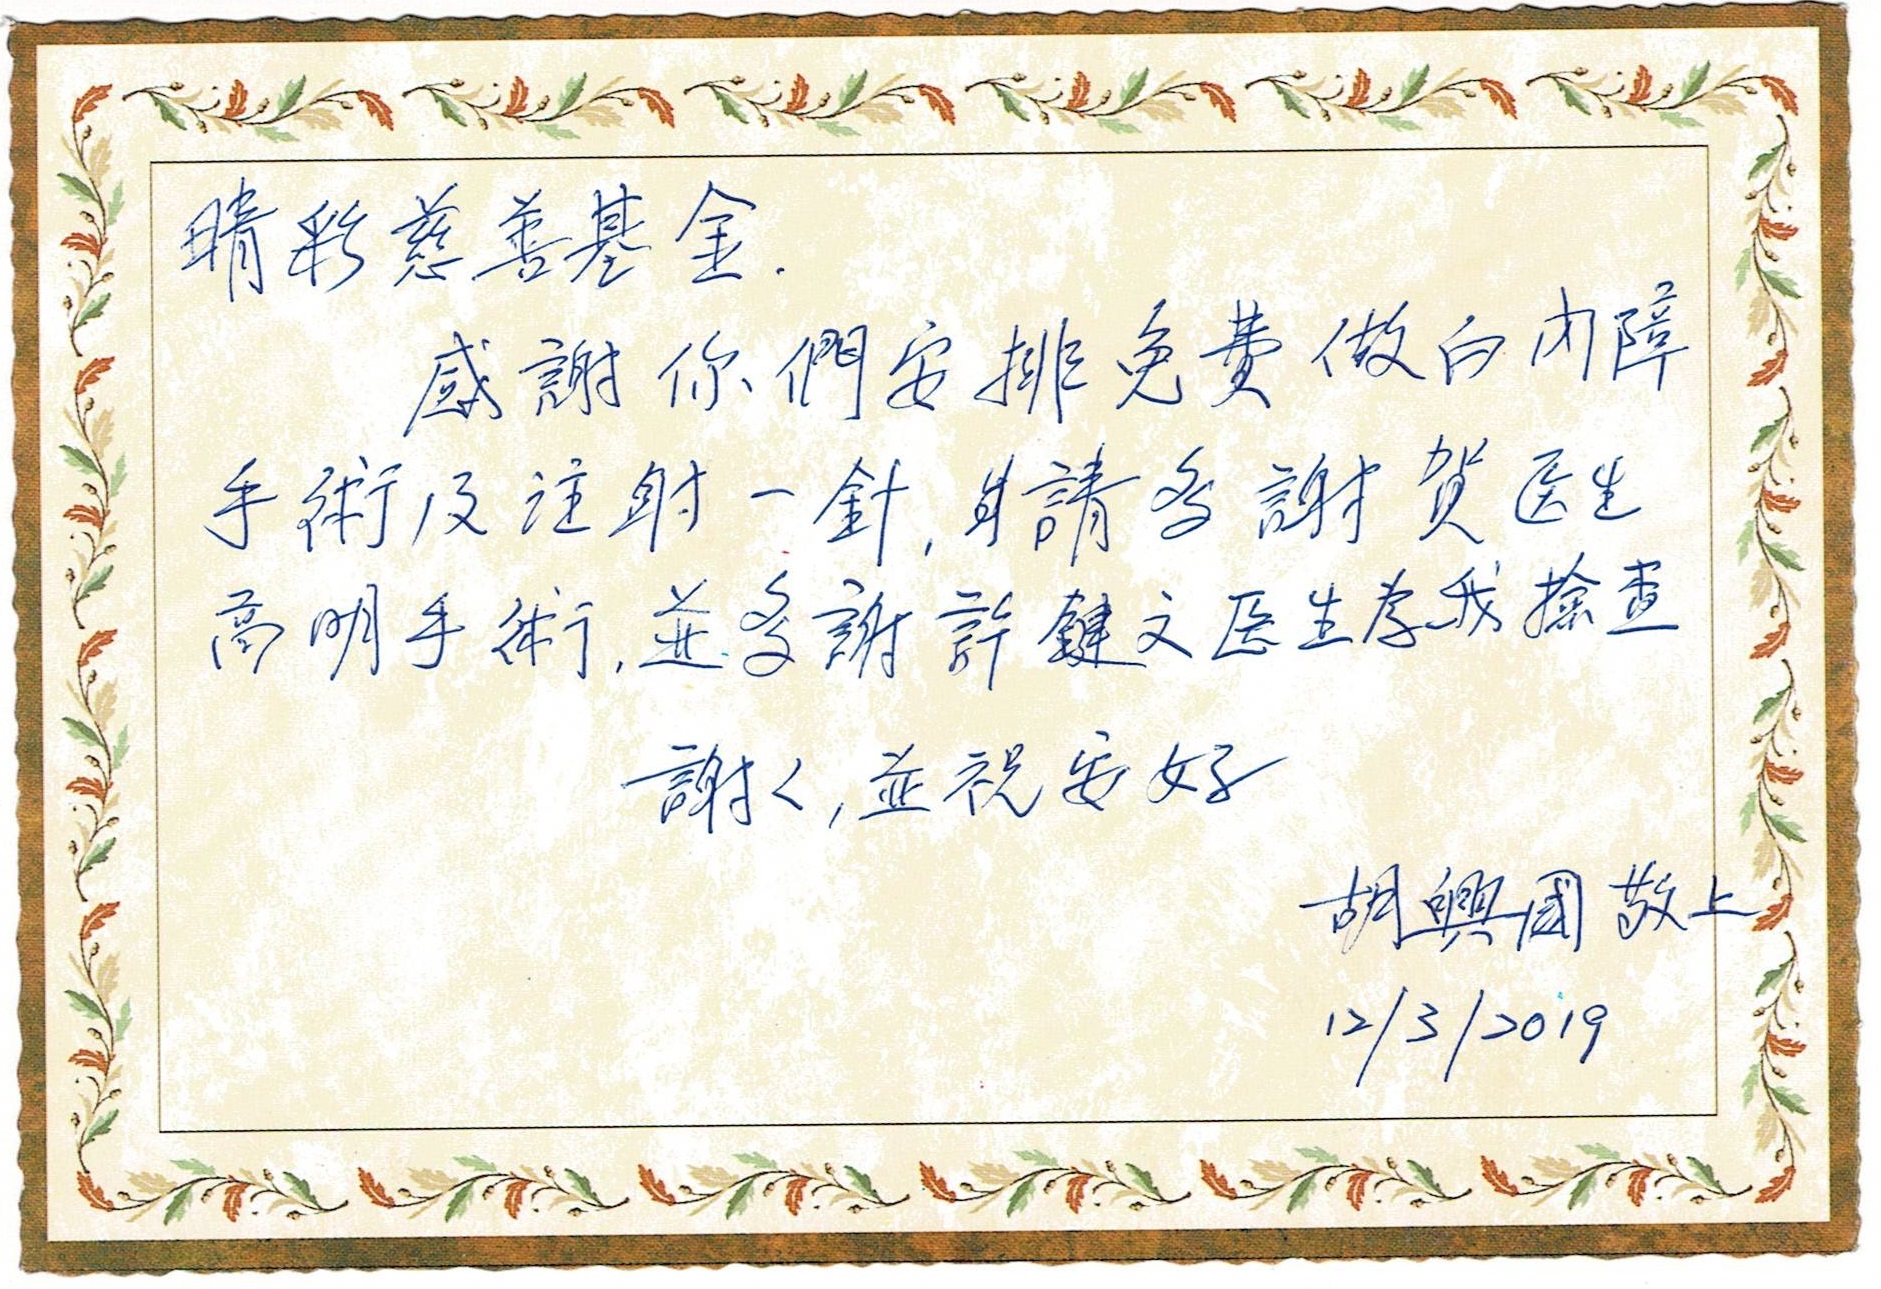 晴彩慈善基金.
感謝你們安排免費做白內障
手術及注射一針,請多謝賀医生
高明手術,並多謝許鍵文医生為我撿查
謝く,並祝安好
胡興國 敬上
12/3/2019